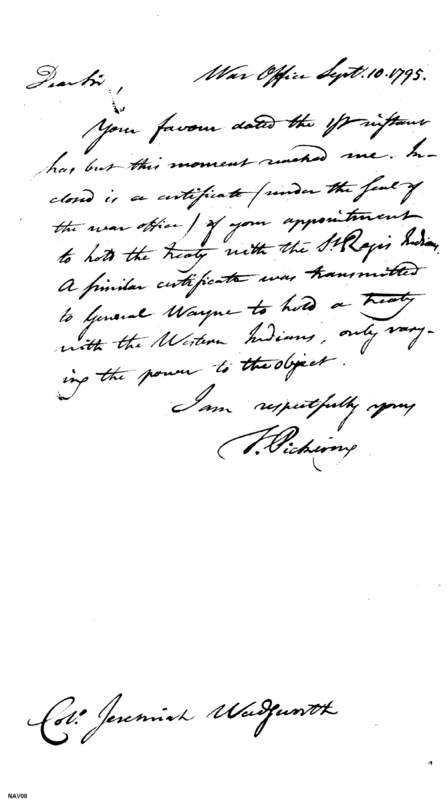 War Office Sept. 10. 1795.
Dear Sir,
Your favour dated the 1st instant
has but this moment reached me. In-
closed is a certificate (under the Seal of
the war office) of your appointment
to hold the treaty with the St. Regis Indians.
A similar certificate was transmitted
to General Wayne to hold a treaty
with the Western Indians, only vary-
ing the power to the object.
I am respectfully yours
T. Pickering
Colo. Jeremiah Wadsworth
NAV08